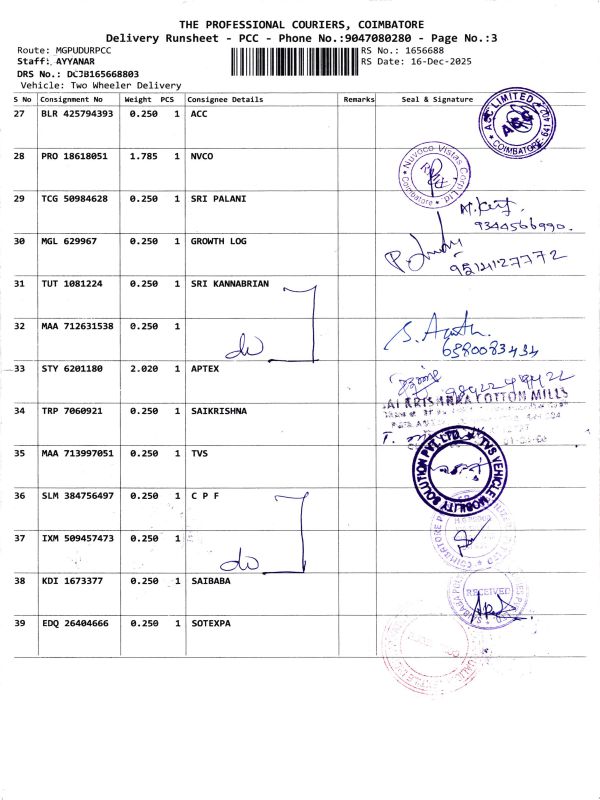 THE PROFESSIONAL COURIERS, COIMBATORE
Delivery Runsheet - PCC - Phone No.:9047080280 - Page No.:3
Route: MGPUDURPCC
RS No.: 1656688
Staff: AYYANAR
RS Date: 16-Dec-2025
DRS No.: DCJB165668803
Vehicle: Two Wheeler Delivery
S No Consignment No Weight PCS Consignee Details Remarks Seal & Signature
27 BLR 425794393 0.250 1 ACC
ACC LIMITED
ACC
COIMBATORE
28 PRO 18618051 1.785 1 NVCO
Nuvoco Vistas Corp Ltd
Coimbatore
29 TCG 50984628 0.250 1 SRI PALANI
9344566990.
30 MGL 629967 0.250 1 GROWTH LOG
9514127772
31 TUT 1081224 0.250 1 SRI KANNABRIAN
32 MAA 712631538 0.250 1
do
6380083434
33 STY 6201180 2.020 1 APTEX
COTTON MILLS
34 TRP 7060921 0.250 1 SAIKRISHNA
35 MAA 713997051 0.250 1 TVS
TVS VEHICLE MOBILITY SOLUTION PVT. LTD
36 SLM 384756497 0.250 1 C P F
37 IXM 509457473 0.250 1
do
COIMBATORE
38 KDI 1673377 0.250 1 SAIBABA
RECEIVED
39 EDQ 26404666 0.250 1 SOTEXPA